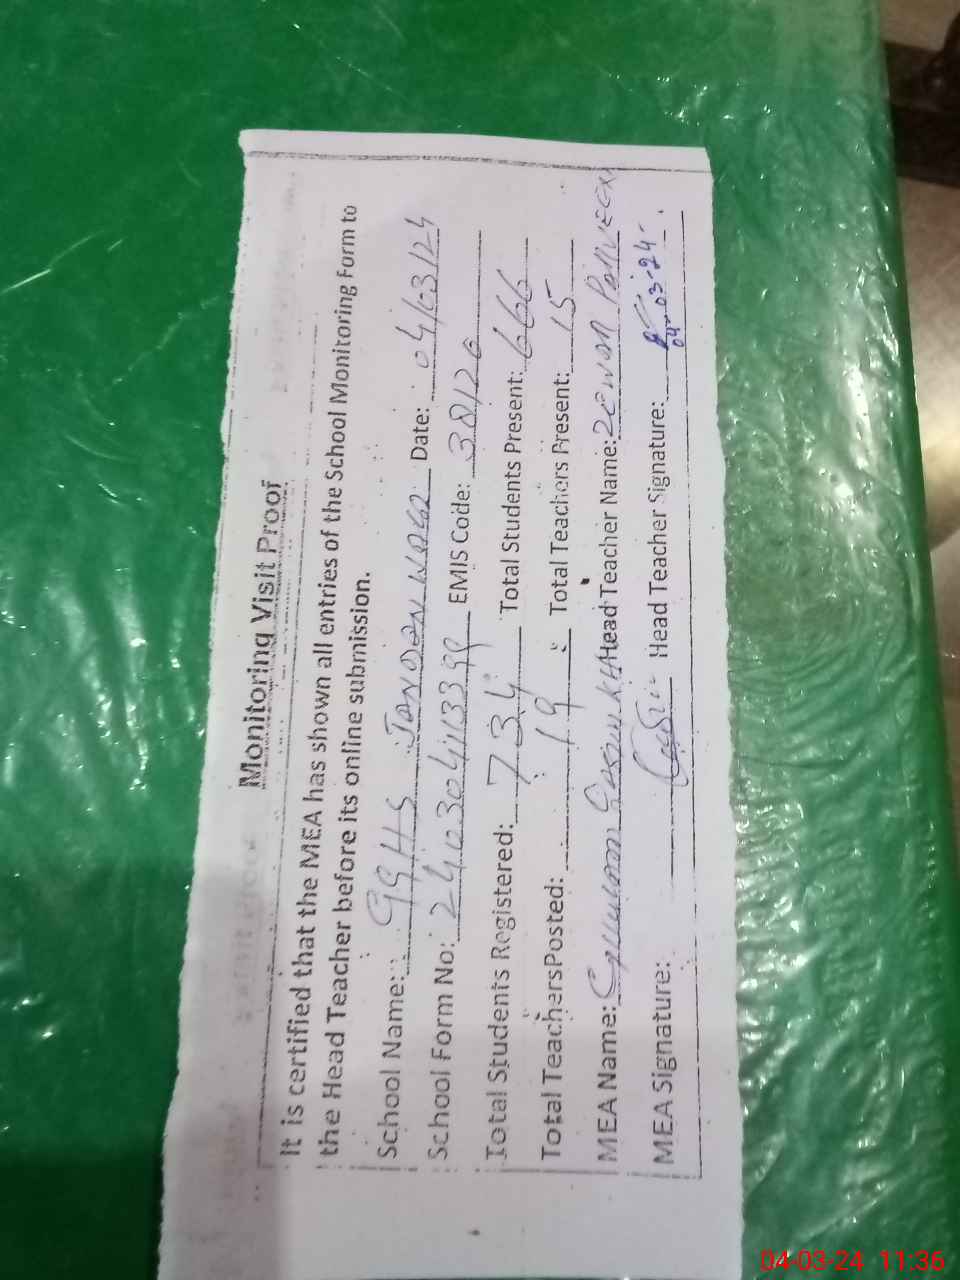 Monitoring Visit Proof
It is certified that the MEA has shown all entries of the School Monitoring Form to
the Head Teacher before its online submission.
School Name: GGHS Date: 04/03/24
School Form No: EMIS Code: 38126
Total Students Registered: 734 Total Students Present: 666
Total Teachers Posted: 19 Total Teachers Present: 15
MEA Name: Head Teacher Name:
MEA Signature: Head Teacher Signature:
04-03-24
04-03-24 11:36